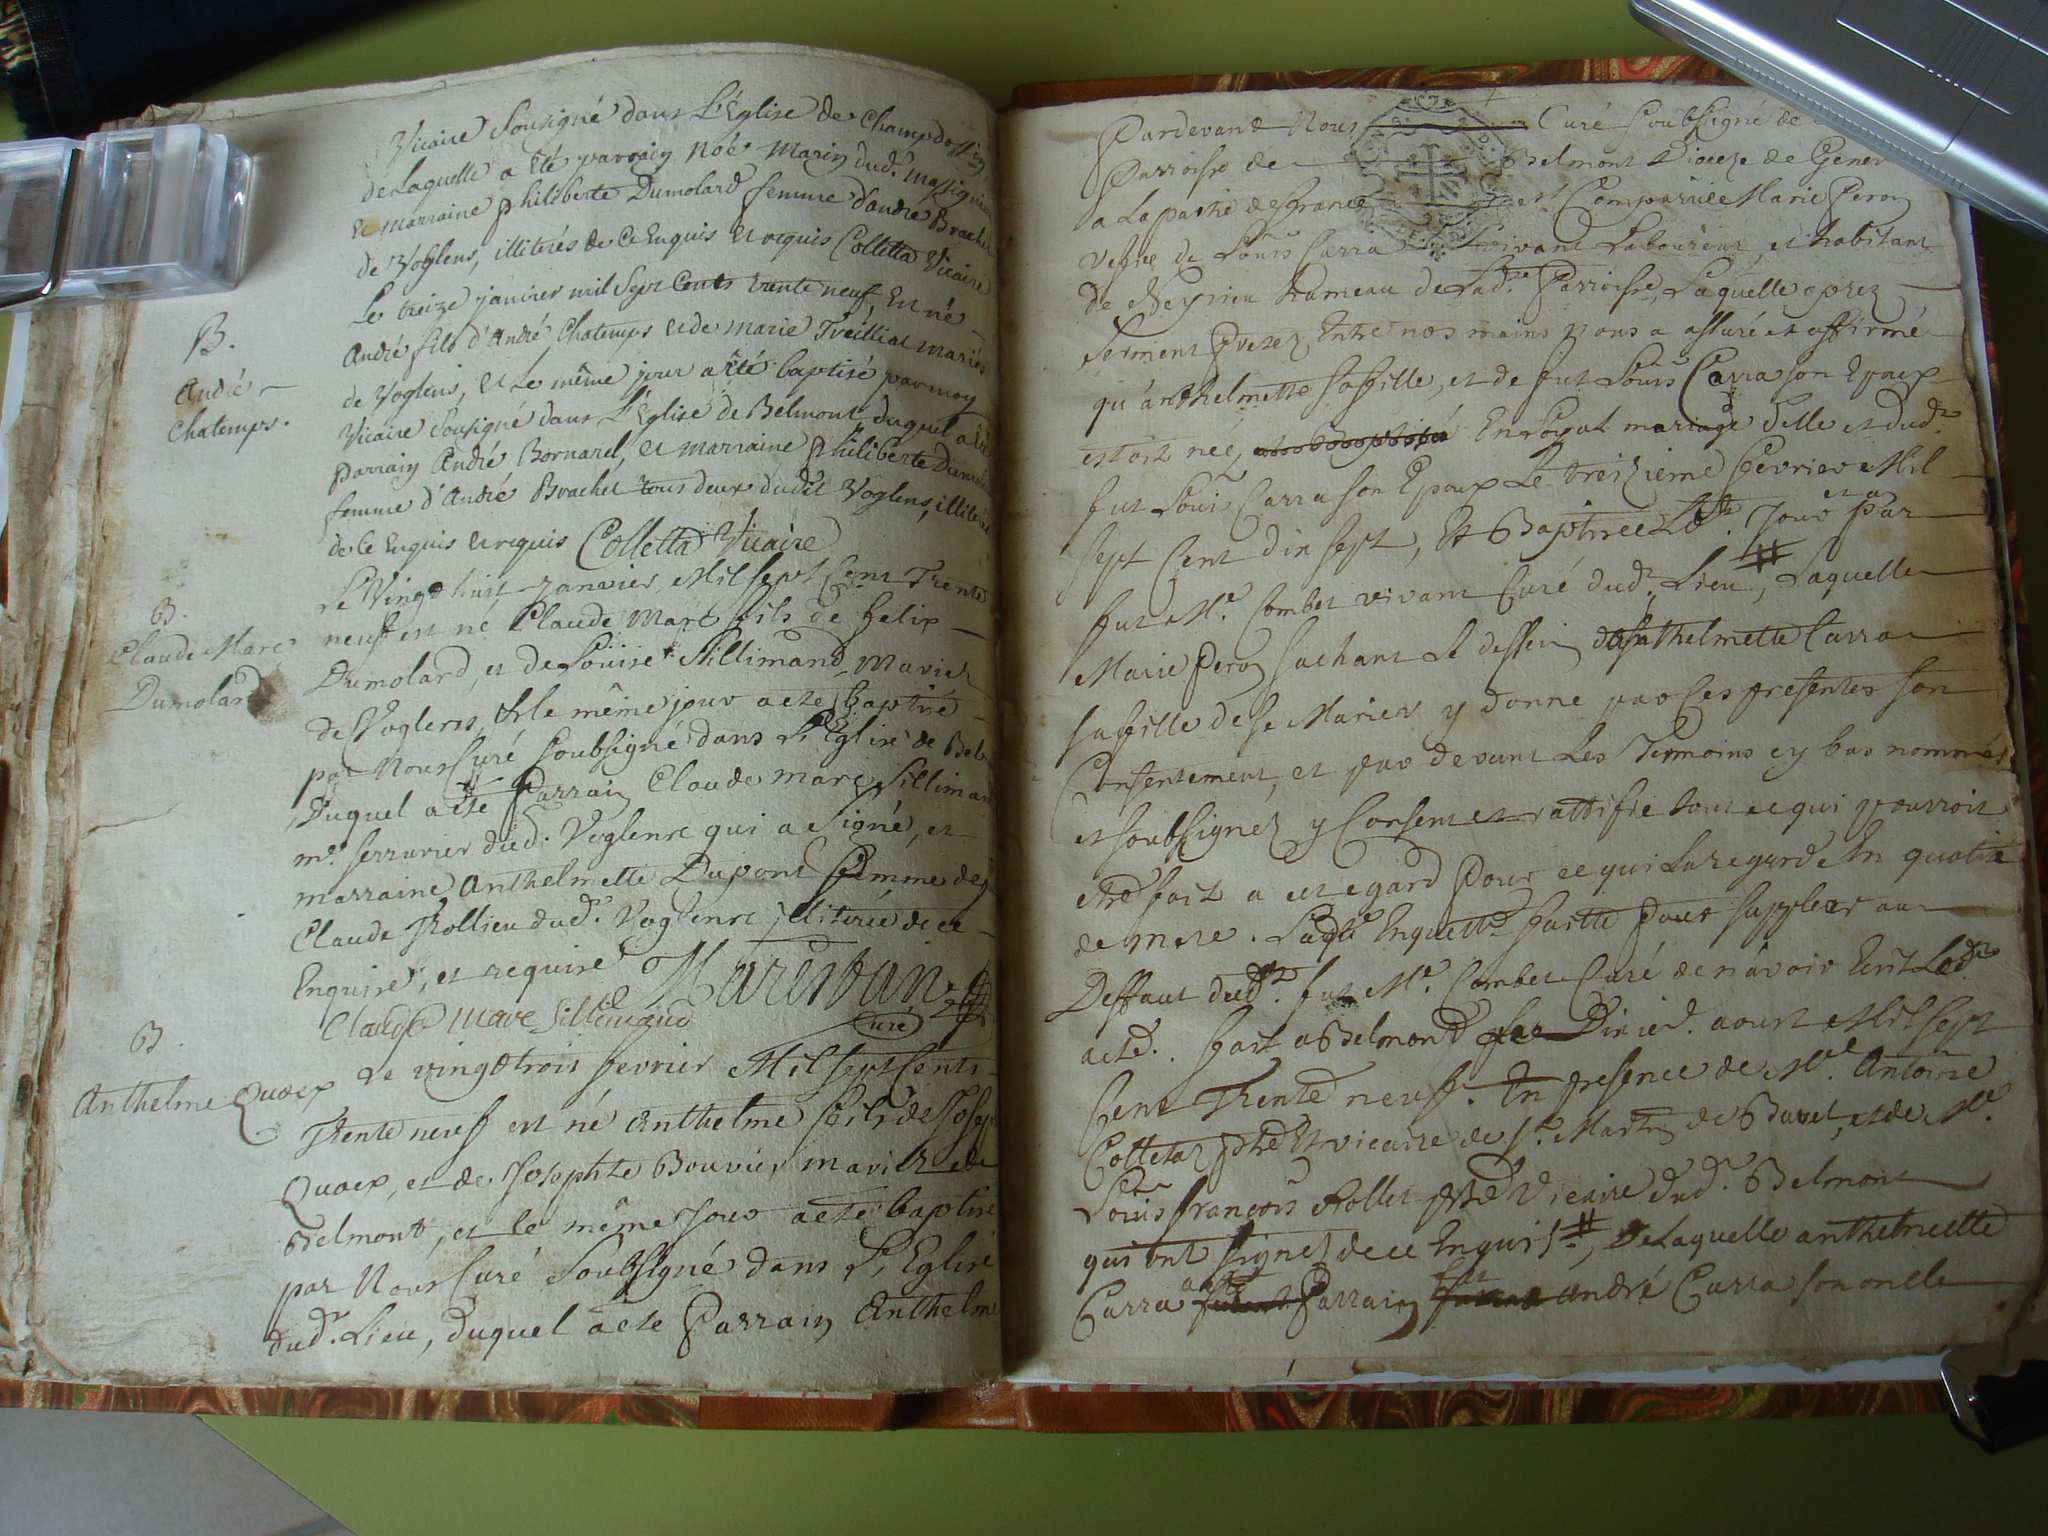 Vicaire Sousigné dans L'Église de Champdossin
de Laquelle a été parrain Noé Marin dud. Massignieu
Et marraine philiberte Dumolard femme d'andré Brachet
de Voglens, illiterés de Ce Enquis Et requis Colletta Vicaire
B.
André
Chatemps.
Le treize janvier mil Sept Cents trente neuf, Est né
André fils d'André Chatemps et de marie Treilliat mariés
de Voglens, et Le même jour a été baptisé par moy
Vicaire Sousigné dans L'Église de Belmont duquel a été
parrain André Bornarel, et marraine philiberte Dumolard
femme d'André Brachet tous deux dudit Voglens, illiterés
de Ce Enquis et requis Colletta Vicaire
B.
Claude Marc
Dumolard
Le Vingt huit Janvier Mil sept Cent Trente
neuf est né Claude Marc fils de felix
Dumolard, et de Loüise Sillimand Mariez
de Voglens, & le même jour a ete baptisé
par Nous Curé soubsigné dans L'Eglise de Bel
Duquel a ete Parrain Claude marc Silliman
me. serrurier dud. Voglens qui a signé, et
marraine Anthelmette Dupont femme de
Claude Rollieu dud. Voglens illiterée de ce
Enquise, et requise Marestan
Claude Marc Sillimand Curé
B.
Anthelme Quaex
Le vingt trois fevrier Mil sept Cents
Trente neuf est né Anthelme fils de Joseph
Quaex, et de Josephte Bouvier mariez de
Belmont, et le même Jour a ete baptisé
par Nous Curé Soubsigné dans L'Eglise
dud. Lieu, duquel a ete Parrain Anthelme
Pardevant Nous Curé soubsigné de
Parroisse de Belmont Dioceze de Genev
a La partie de france est Comparüe Marie Peron
vefve de Loüis Carra vivant Laboureur, et habitant
de Neyrieu hameau de Lad. Parroisse, Laquelle aprez
serment Pretez Entre nos mains nous a assuré et affirmé
qu'anthelmette sa fille, et de fut Loüis Carra son Epoux
estoit née, En Loyal mariage d'elle et dud.
fut Loüis Carra son Epoux Le treizieme fevrier Mil
sept Cent dix sept, Et Baptisée Led. Jour par
fut Me. Combet vivant Curé dud. Lieu #, Laquelle
Marie Peron sachant Le dessein d'Anthelmette Carra
sa fille de se Marier y donne par Ces presentes son
Consentement, et par devant Les Temoins cy bas nommés
et soubsignez y Consent et rattifie tout ce qui pourroit
etre fait a cet egard Pour ce qui La regard En qualité
de mere. Ladte Enquette faitte Pour suppleer au
Deffaut dud. fut Me. Combet Curé de n'avoir Ecrit Led.
acte. fait a Belmont Dixied. aoust Mil sept
Cent Trente neuf. En presence de Me. Antoine
Colletaz ptre Et vicaire de St. Martin de Bavel, et de Me.
Loüis françois Rollet ptre Vicaire dud. Belmont
qui ont signez de ce Enquis #, De Laquelle anthelmette
Carra a été Parrain fut andré Carra son oncle